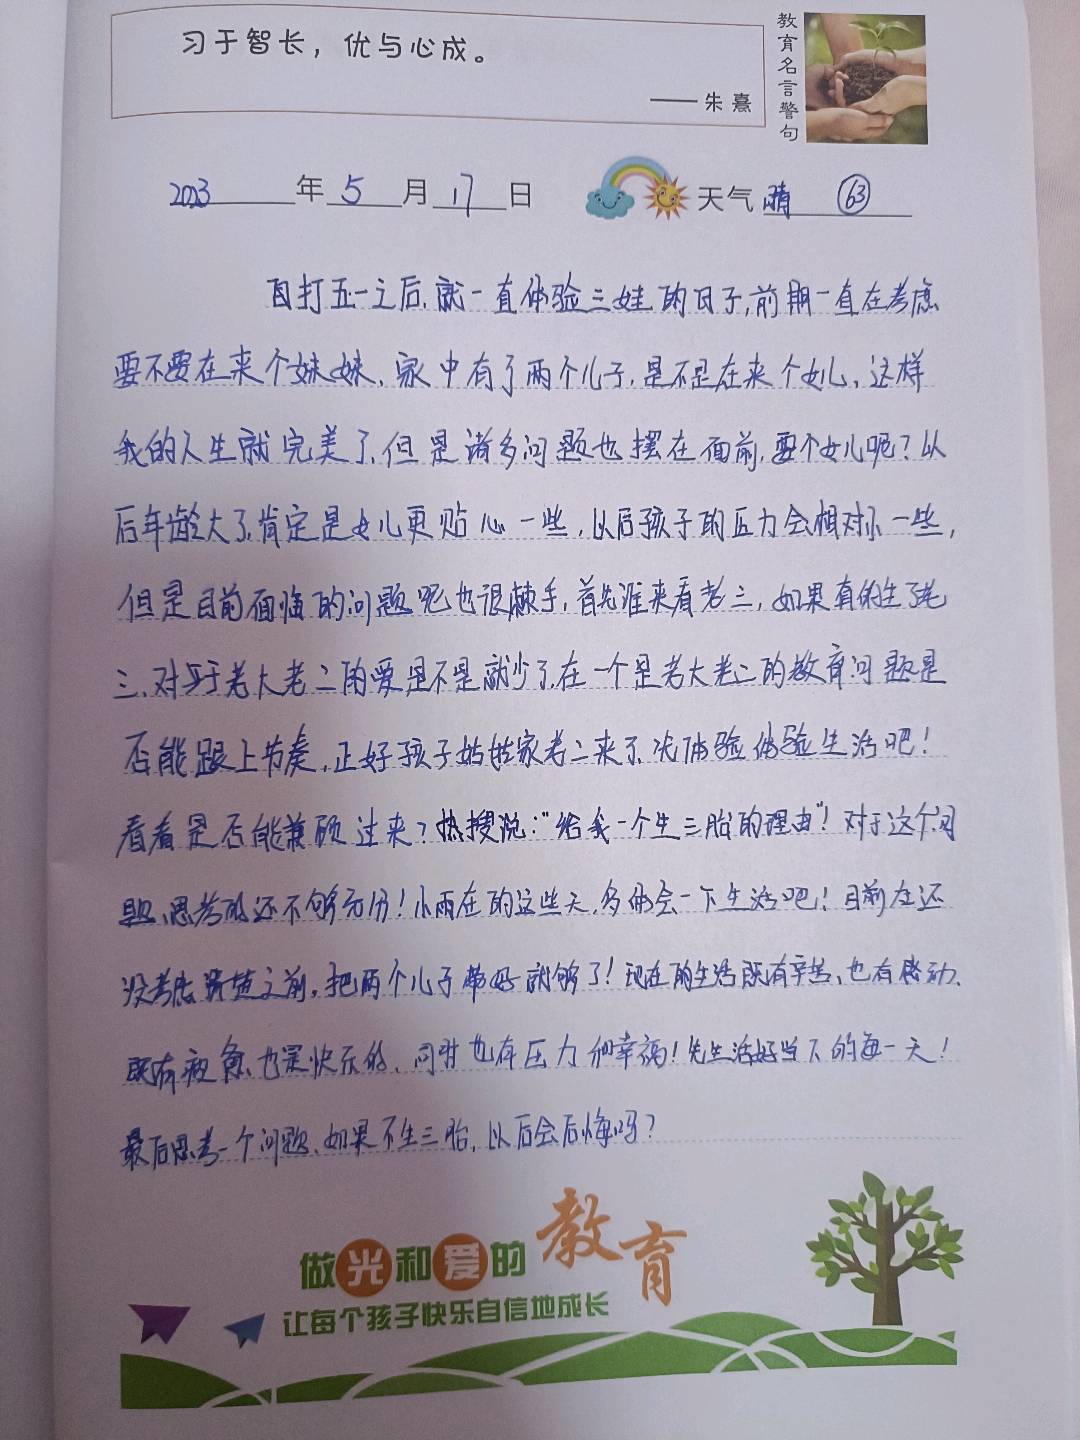 习于智长，优与心成。
——朱熹
教育名言警句
2023年5月17日 天气晴 63
自打五一之后,就一直体验三娃的日子,前期一直在考虑
要不要在来个妹妹、家中有了两个儿子,是不是在来个女儿、这样
我的人生就完美了,但是诸多问题也摆在面前,要个女儿呢?以
后年龄大了,肯定是女儿更贴心一些,以后孩子的压力会相对小一些,
但是目前面临的问题呢也很棘手,首先谁来看老三,如果真的生了老
三、对于老大老二的爱是不是就少了,在一个是老大老二的教育问题是
否能跟上节奏,正好孩子姑姑家老二来了,先体验体验生活吧!
看看是否能兼顾过来?热搜说:"给我一个生三胎的理由"!对于这个问
题、思考的还不够充分!小雨在的这些天,多体会一下生活吧!目前在还
没考虑清楚之前,把两个儿子带好就够了!现在的生活既有辛苦、也有感动、
既有疲惫也是快乐的、同时也有压力和幸福!先生活好当下的每一天!
最后思考一个问题、如果不生三胎,以后会后悔吗?
做光和爱的教育
让每个孩子快乐自信地成长